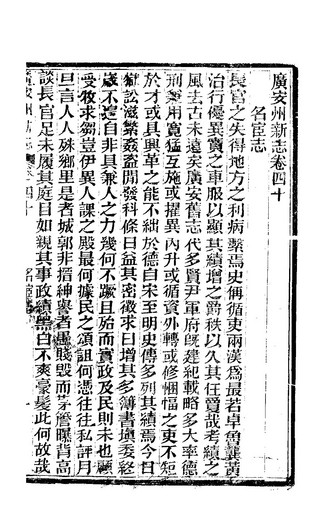 廣安州新志卷四十
名宦志
長官之失得地方之利病繫焉史稱循吏兩漢爲最若卓魯龔黃
治行優異賁之車服以顯其績增之爵秩以久其任賢哉考績之
風去古未遠矣廣安舊志代多賢尹軍府旣建紀載略多大率德
刑兼用寬猛互施或擢異內升或循資外轉或修悃愊之吏不短
於才或具興革之能不絀於德自宋至明史傳多列其績焉今日
獄訟滋繁姦盜間發科條日益其密徵求日增其多簿書填委終
歲不遑自非具兼人之力幾何不蹶且始而責政及民則未也顧
受牧求芻豈伊異人課之殿最何據民之頌詛何憑往往私評月
旦言人人殊鄉里是者城郭非搢紳譽者愚賤毀而茅簷曝背高
談長官足未履其庭目如親其事政績黑白不爽豪髮此何故哉